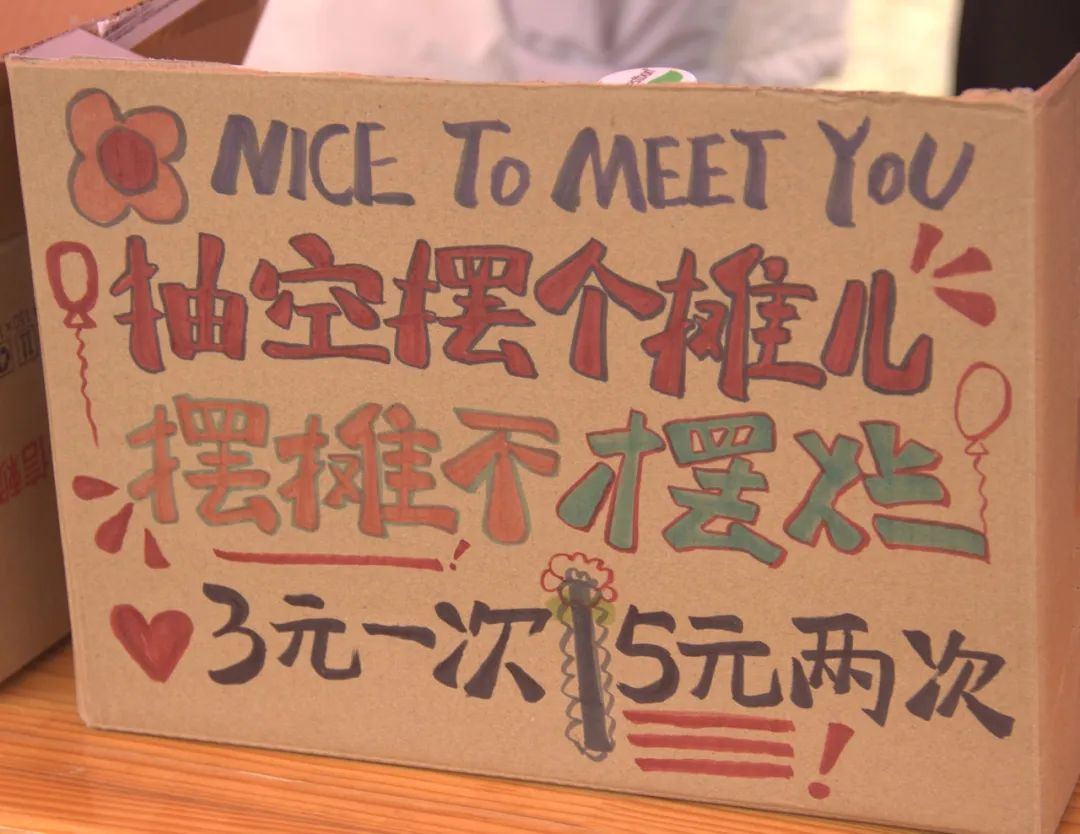 NICE To MEET YoU
抽空摆个摊儿
摆摊不摆烂
3元一次 5元两次